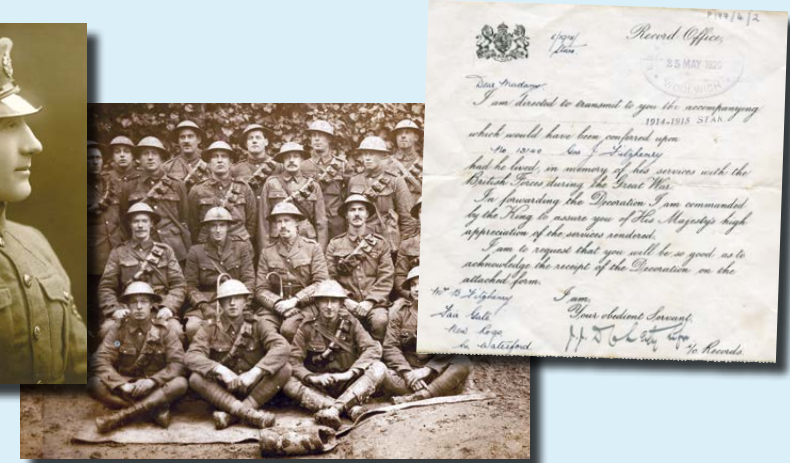 P100/4/2
Record Office,
25 MAY 1920
WOOLWICH
Dear Madam
I am directed to transmit to you the accompanying
1914-1915 STAR
which would have been conferred upon
No. J Fitzhenry
had he lived, in memory of his services with the
British Forces during the Great War.
In forwarding the Decoration I am commanded
by the King to assure you of His Majesty's high
appreciation of the services rendered.
I am to request that you will be so good as to
acknowledge the receipt of the Decoration on the
attached form.
I am,
Your obedient Servant,
i/c Records.
B Fitzhenry
Gate
New
Co Waterford